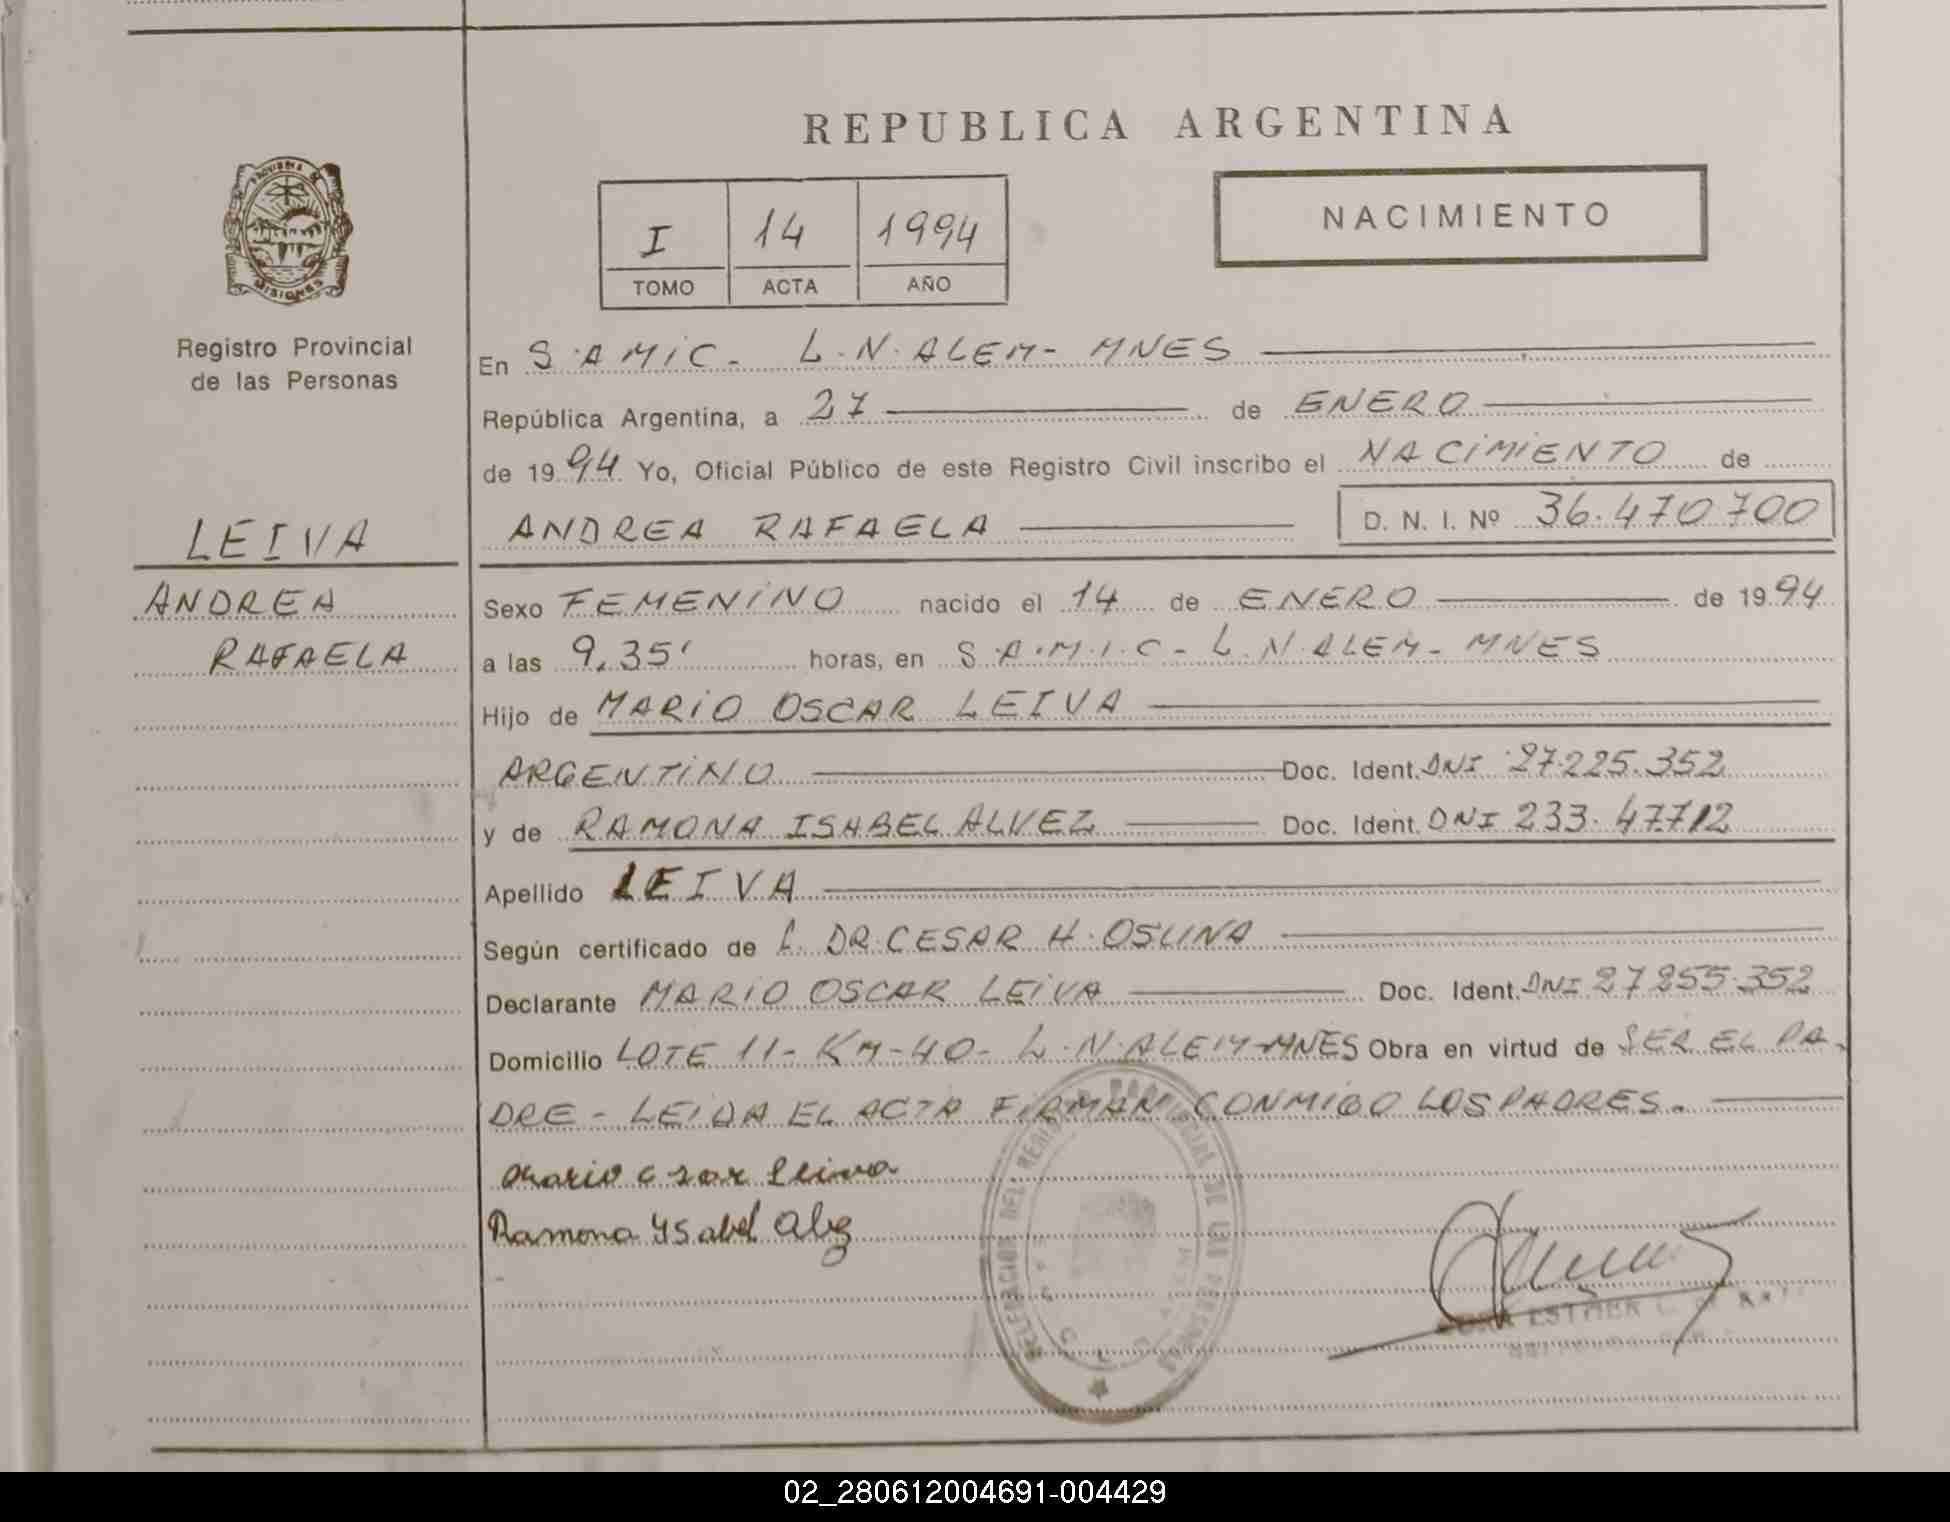 REPUBLICA ARGENTINA
NACIMIENTO
I 14 1994
TOMO ACTA AÑO
PROVINCIA DE
MISIONES
Registro Provincial
de las Personas
LEIVA
ANDREA
RAFAELA
En S.A.M.I.C. - L.N. ALEM - MNES
República Argentina, a 27 de ENERO
de 1994 Yo, Oficial Público de este Registro Civil inscribo el NACIMIENTO de
ANDREA RAFAELA D. N. I. Nº 36.470.700
Sexo FEMENINO nacido el 14 de ENERO de 1994
a las 9,35' horas, en S.A.M.I.C - L.N. ALEM - MNES
Hijo de MARIO OSCAR LEIVA
ARGENTINO Doc. Ident. DNI 27.225.352
y de RAMONA ISABEL ALVEZ Doc. Ident. DNI 233.47712
Apellido LEIVA
Según certificado de DR. CESAR H. OSUNA
Declarante MARIO OSCAR LEIVA Doc. Ident. DNI 27255.352
Domicilio LOTE 11 - KM-40- L.N. ALEM-MNES Obra en virtud de SER EL PA-
DRE - LEIDA EL ACTA FIRMAN CONMIGO LOS PADRES.
Mario Leiva
Ramona Isabel
DELEGACION DEL REGISTRO PROVINCIAL DE LAS PERSONAS
ESTHER
02_280612004691-004429